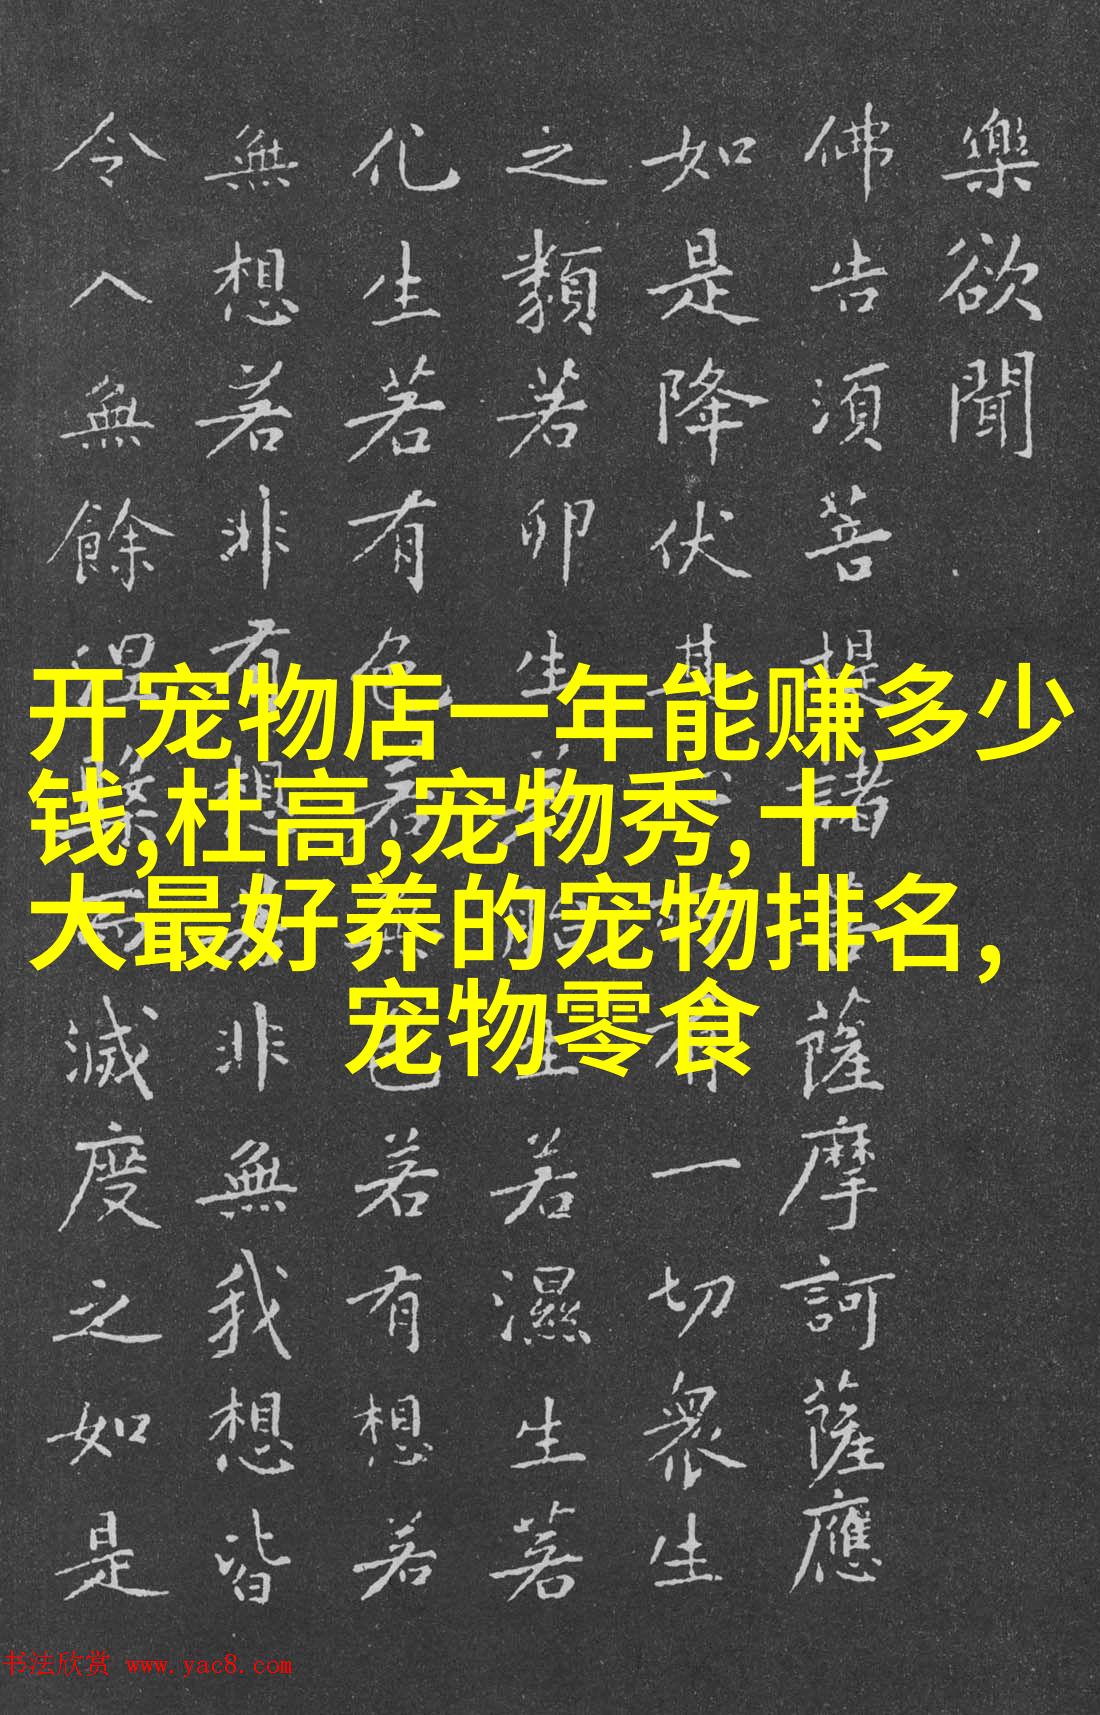 樂欲聞
佛告須菩提諸菩薩摩訶薩應
如是降伏其有一切衆生
之類若卵生若生若濕生若
化生若有色若無色若有想若
無想若非有想若非無我想皆
令入無餘涅槃而滅度之如是
开宠物店一年能赚多少
钱,杜高,宠物秀,十
大最好养的宠物排名,
宠物零食
书法欣赏 www.yac8.com